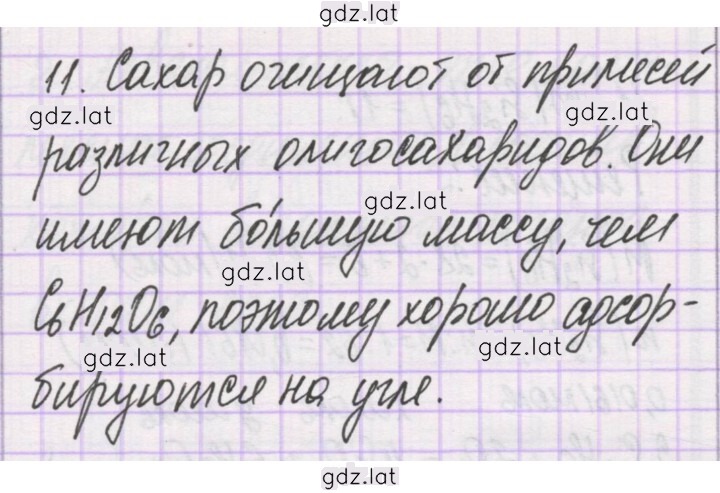 gdz.lat
11. Сахар очищают от примесей
gdz.lat gdz.lat
различных олигосахаридов. Они
gdz.lat
имеют бо́льшую массу, чем
gdz.lat
C6H12O6, поэтому хорошо адсор-
gdz.lat gdz.lat
бируются на угле.
gdz.lat